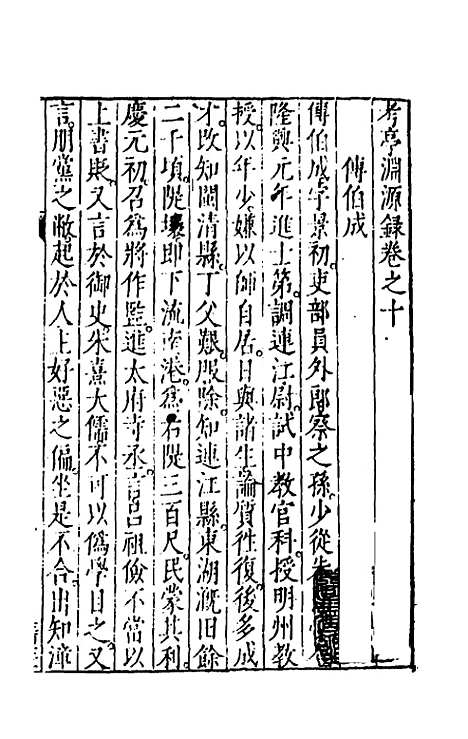 考亭淵源録卷之十
傅伯成
傅伯成字景初吏部員外郎察之孫少從朱
隆興元年進士第調連江尉試中教官科授明州教
授以年少嫌以師自居日與諸生論質徃復後多成
才改知閩清縣丁父艱服除知連江縣東湖溉旧餘
二千頃隄壞即下流南港爲石隄三百尺民蒙其利
慶元初召爲將作監進太府寺丞言吕祖儉不當以
上書貶又言於御史朱熹大儒不可以僞學目之又
言朋黨之敝起於人主好惡之偏坐是不合出知漳